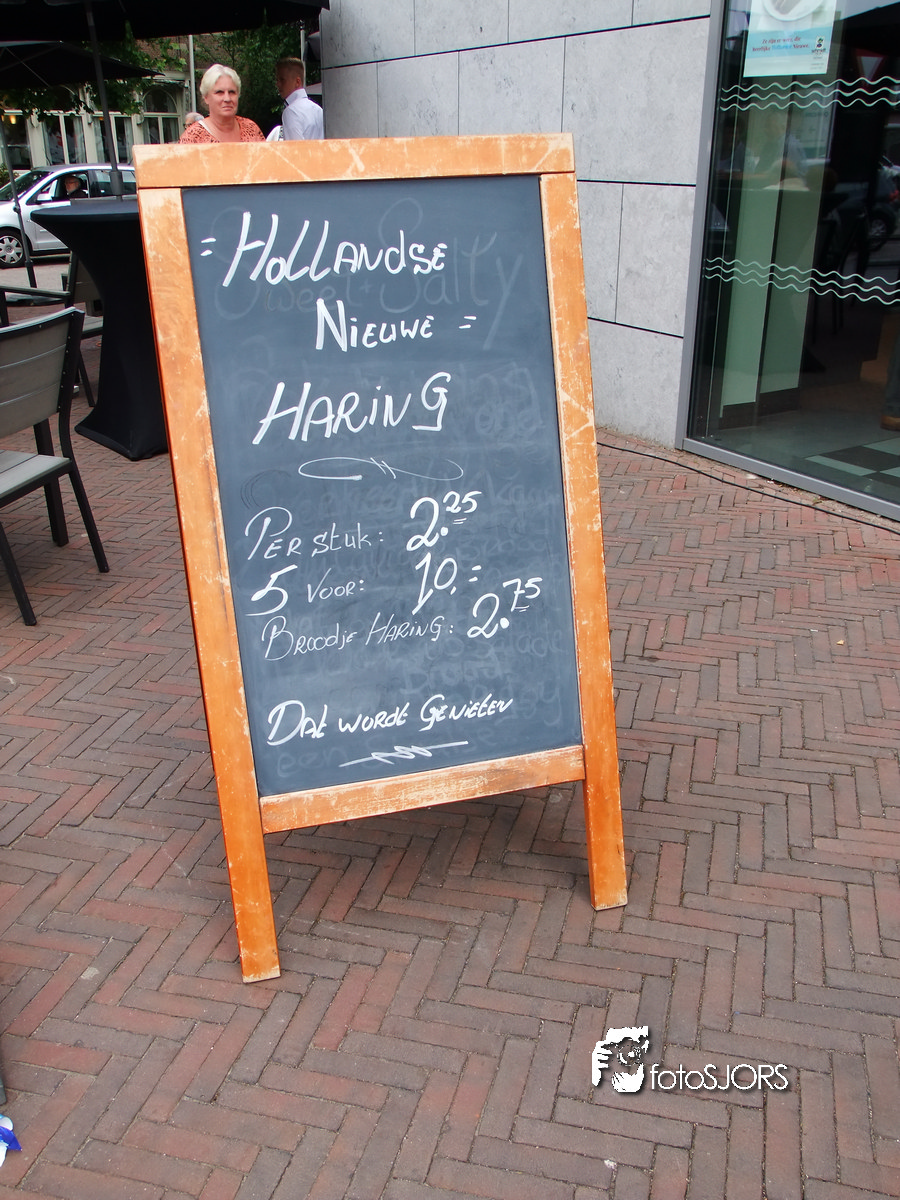 = Hollandse
Nieuwe =
Haring
Per stuk: 2.25
5 voor: 10,=
Broodje Haring: 2.75
Dat wordt Genieten
Sweet + Salty
fotoSJORS